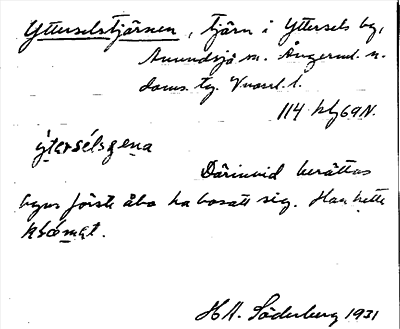 Ytterselstjärnen, tjärn i Yttersels by,
Anundsjö sn. Ångerml. n.
doms. tg. Vnorrl. l.
114
ýtərsélsʒena
Därinvid berättas
byns förste åbo ha bosatt sig. Han hette
H.A. Söderberg 1931